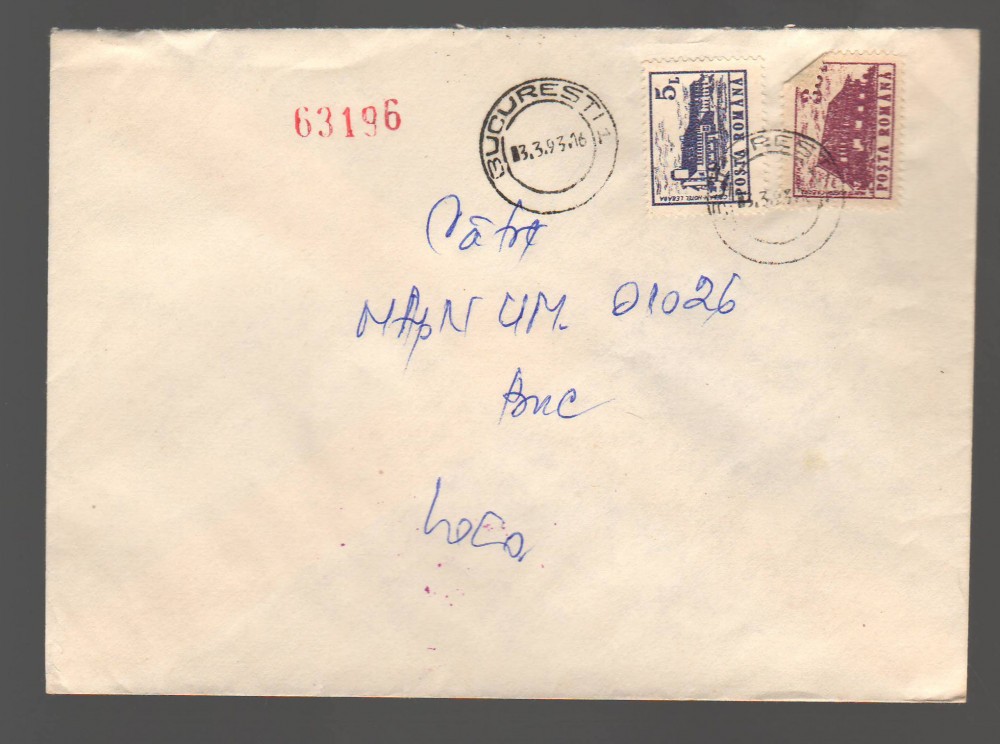 63196
BUCURESTI 1
3.3.93.16
5L
POSTA ROMANA
HOTEL LEBADA
POSTA ROMANA
3.3.93
Către
MApN UM. 01026
Buc
Loco